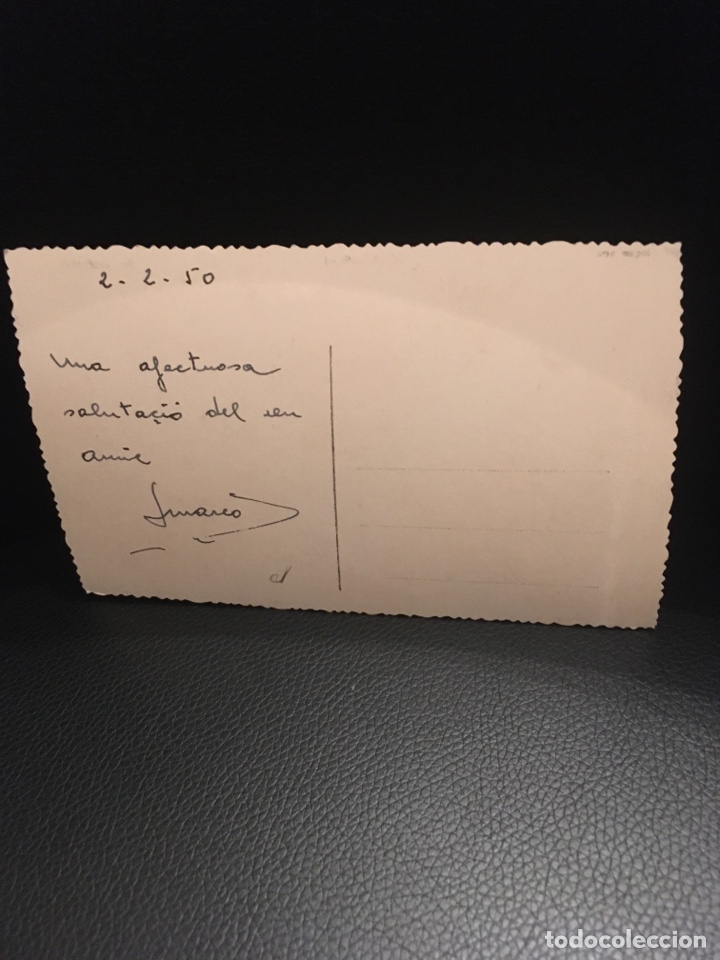 2-2-50
Una afectuosa
salutació del seu
amic
todocoleccion